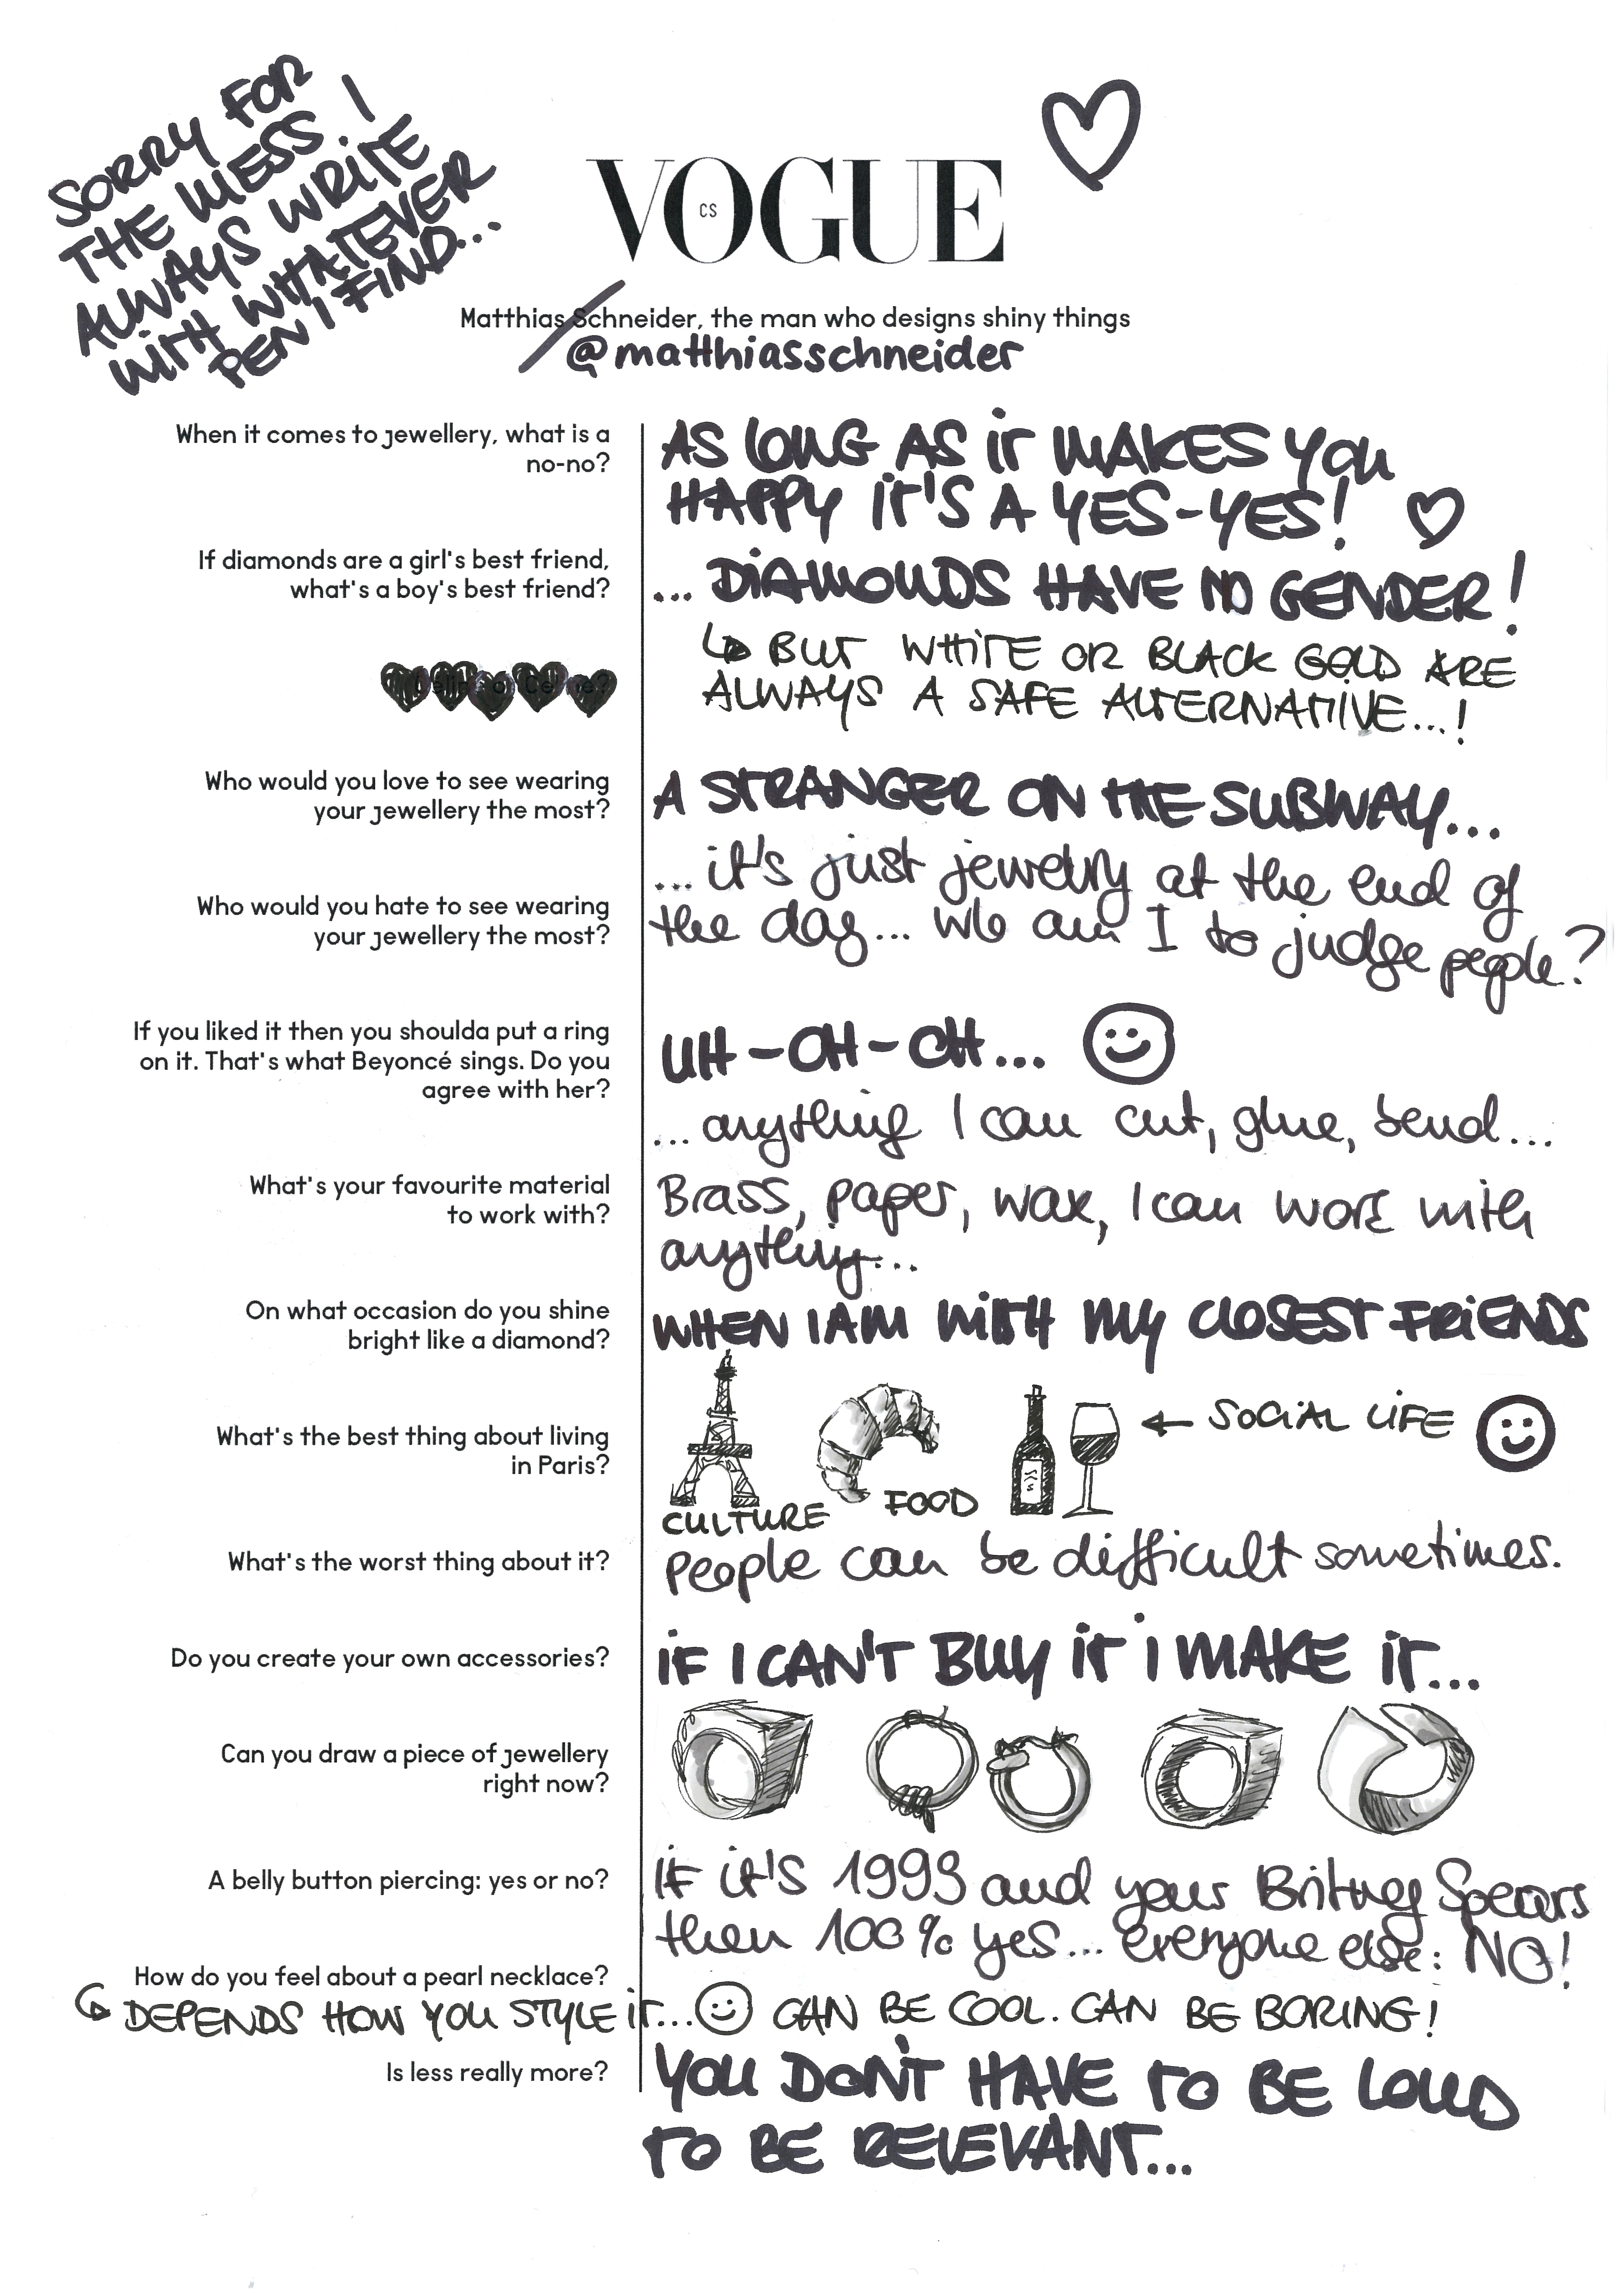 SORRY FOR
THE MESS. I
ALWAYS WRITE
WITH WHATEVER
PEN I FIND...
VOGUE
CS
Matthias Schneider, the man who designs shiny things
@matthiasschneider
When it comes to jewellery, what is a
no-no?
AS LONG AS IT MAKES YOU
HAPPY IT'S A YES-YES!
If diamonds are a girl's best friend,
what's a boy's best friend?
... DIAMONDS HAVE NO GENDER!
BUT WHITE OR BLACK GOLD ARE
ALWAYS A SAFE ALTERNATIVE...!
Who would you love to see wearing
your jewellery the most?
A STRANGER ON THE SUBWAY...
Who would you hate to see wearing
your jewellery the most?
... it's just jewelry at the end of
the day... who am I to judge people?
If you liked it then you shoulda put a ring
on it. That's what Beyoncé sings. Do you
agree with her?
UH-OH-OH...
What's your favourite material
to work with?
... anything I can cut, glue, bend...
Brass, paper, wax, I can work with
anything...
On what occasion do you shine
bright like a diamond?
WHEN I AM WITH MY CLOSEST FRIENDS
What's the best thing about living
in Paris?
CULTURE
FOOD
SOCIAL LIFE
What's the worst thing about it?
People can be difficult sometimes.
Do you create your own accessories?
IF I CAN'T BUY IT I MAKE IT...
Can you draw a piece of jewellery
right now?
A belly button piercing: yes or no?
IF it's 1999 and your Britney Spears
then 100% yes... everyone else: NO!
How do you feel about a pearl necklace?
DEPENDS HOW YOU STYLE IT... CAN BE COOL. CAN BE BORING!
Is less really more?
YOU DON'T HAVE TO BE LOUD
TO BE RELEVANT...